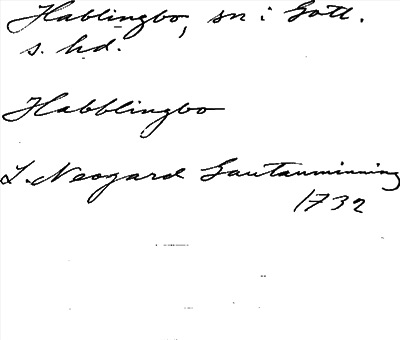 Hablingbo, sn i Gotl.
s. hd.
Habblingbo
L. Neogard Gautauminning
1732